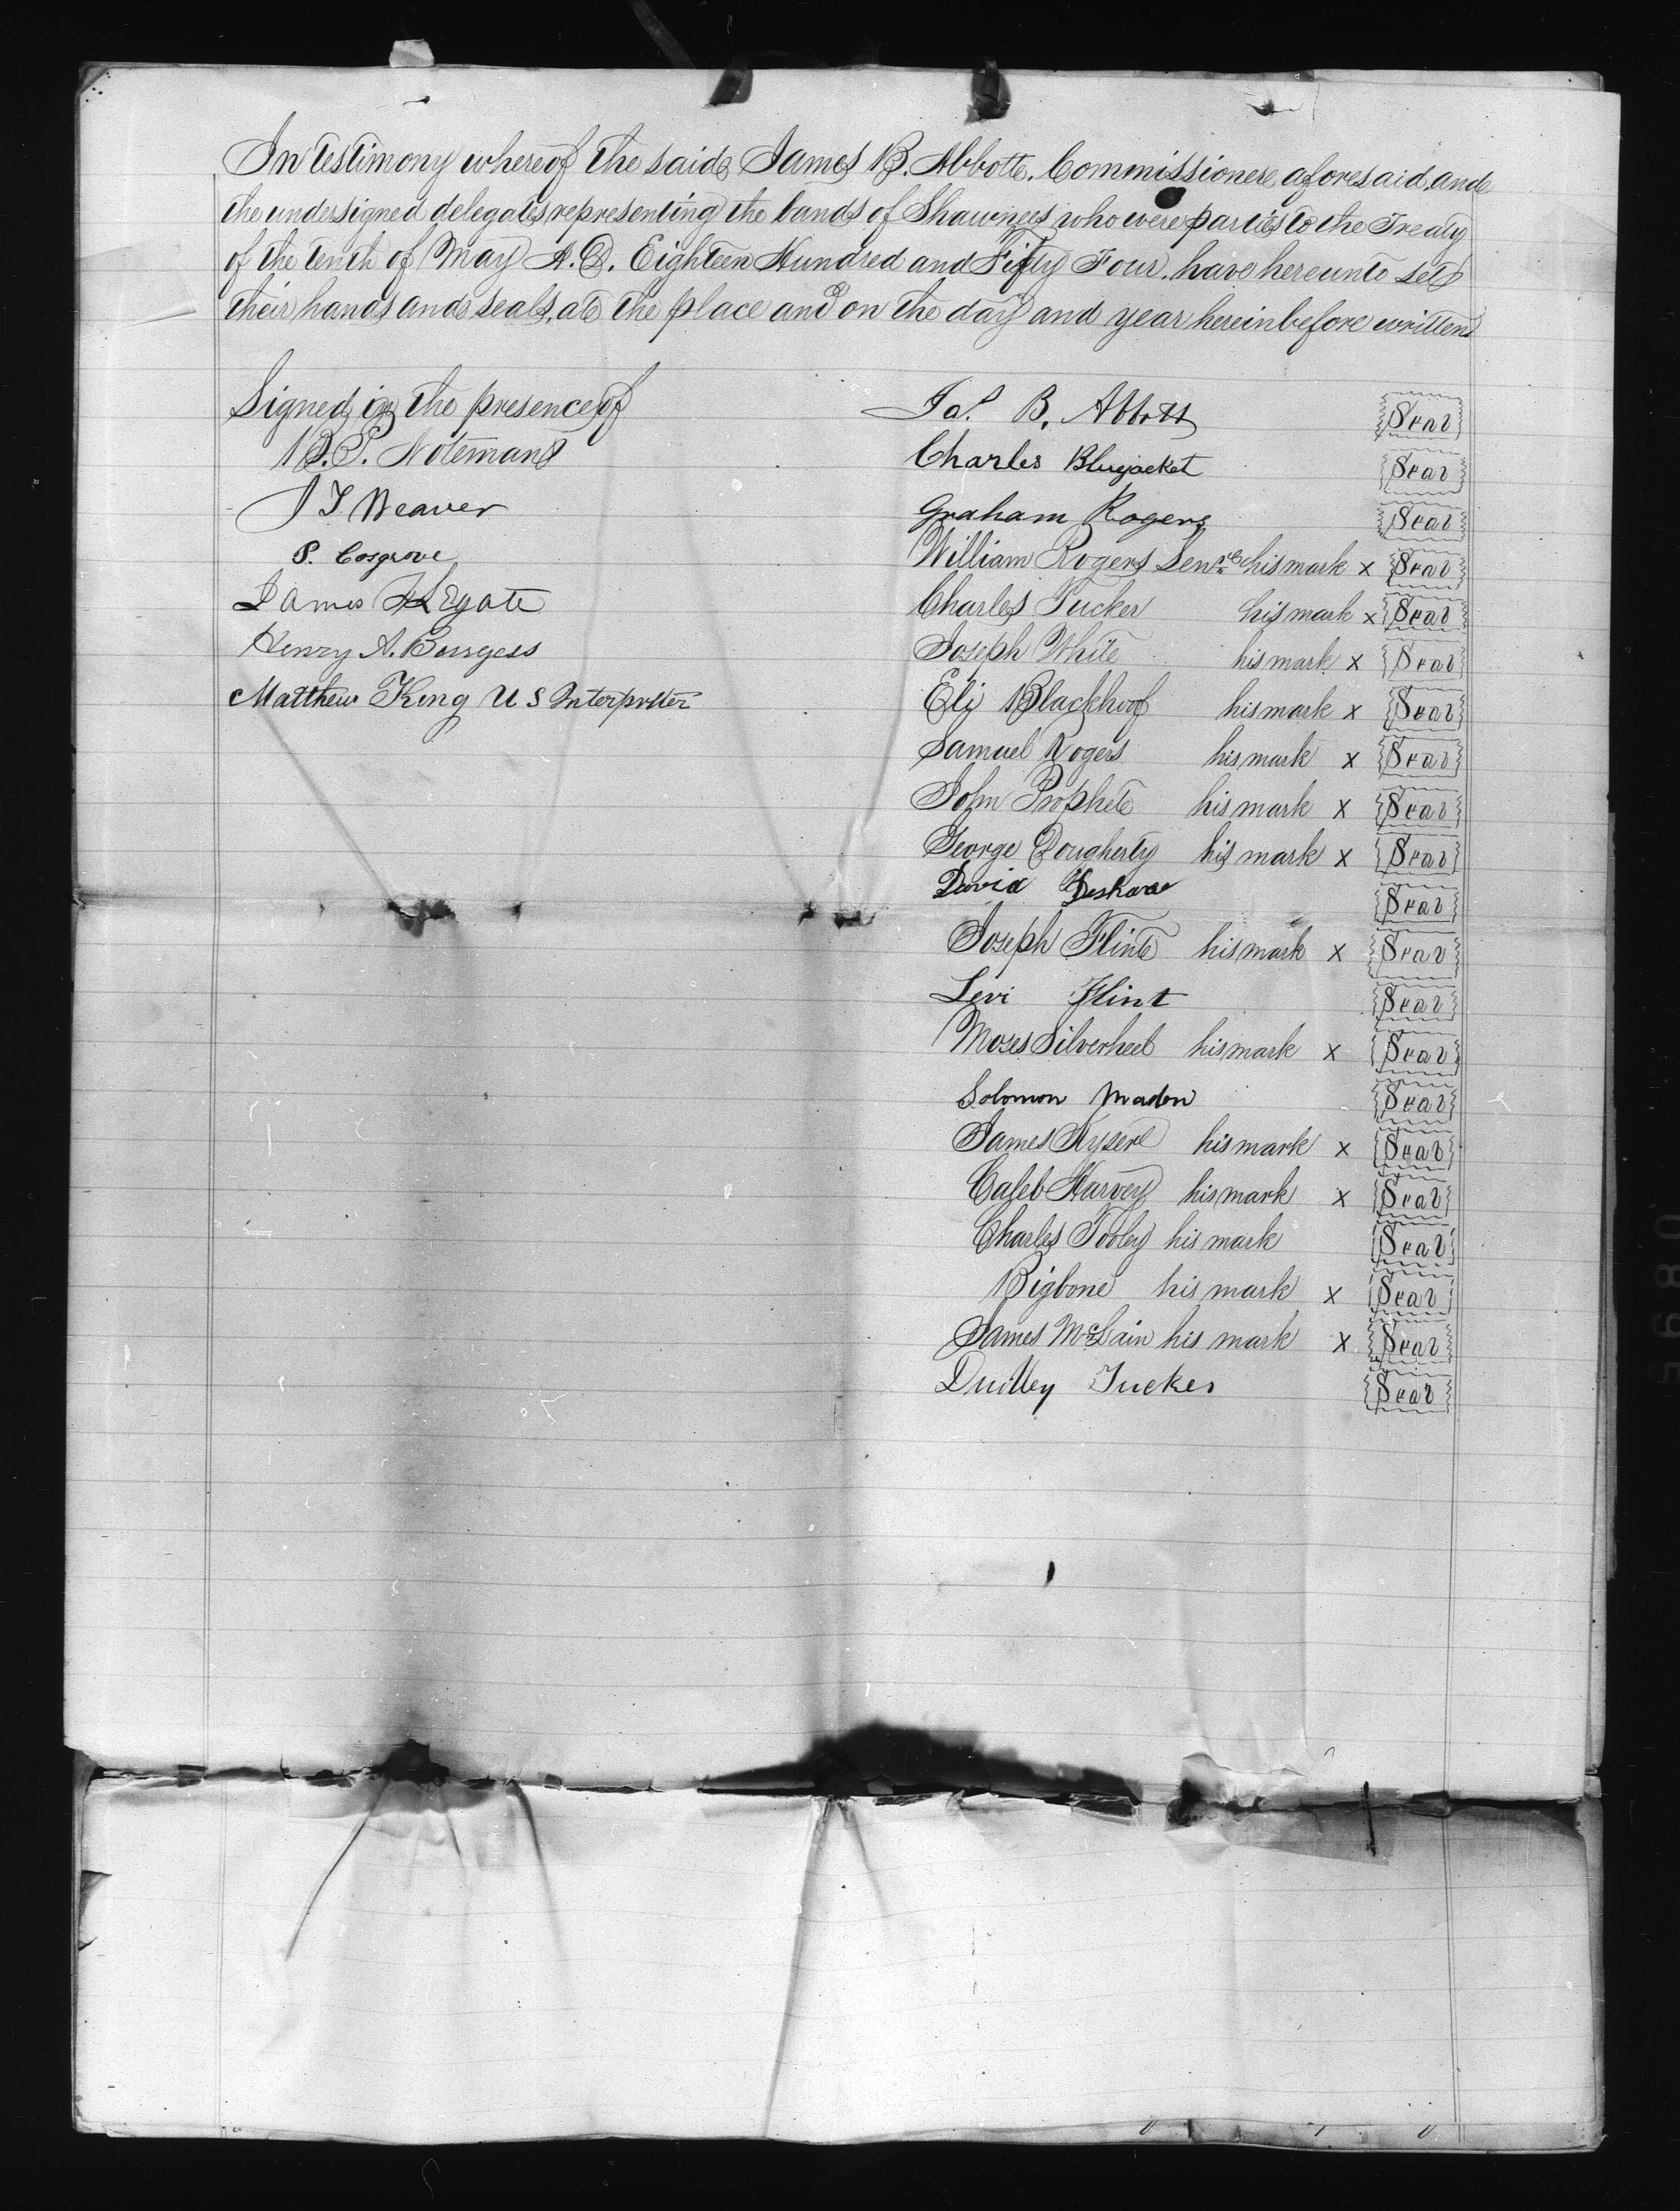 In testimony whereof the said James B. Abbott. Commissioner aforesaid, and
the undersigned delegates representing the bands of Shawnees who were parties to the Treaty
of the tenth of May A.D. Eighteen Hundred and Fifty Four, have hereunto set
their hands and seals, at the place and on the day and year hereinbefore written
Signed in the presence of
B.P. Noteman
J T Weaver
P. Cosgrove
James Legate
Henry A. Burgess
Matthew King U S Interpreter
Jas. B. Abbott Seal
Charles Bluejacket Seal
Graham Rogers Seal
William Rogers Senr his mark x Seal
Charles Tucker his mark x Seal
Joseph White his mark x Seal
Eli Blackhoof his mark x Seal
Samuel Rogers his mark x Seal
John Prophet his mark x Seal
George Dougherty his mark x Seal
David Seal
Joseph Flint his mark x Seal
Levi Flint Seal
Moses Silverheel his mark x Seal
Solomon Maden Seal
James Kyser his mark x Seal
Caleb Harvey his mark x Seal
Charles Tooley his mark Seal
Bigbone his mark x Seal
James McLain his mark x Seal
Dudley Tucker Seal